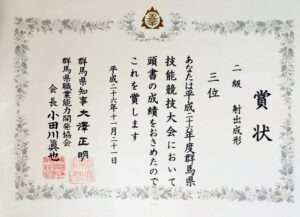 賞状
二級 射出成形
三位
あなたは平成二十六年度群馬県
技能競技大会において
頭書の成績をおさめたので
これを賞します
平成二十六年十一月二十一日
群馬県知事 大澤正明
群馬県職業能力開発協会
会長 小田川眞也